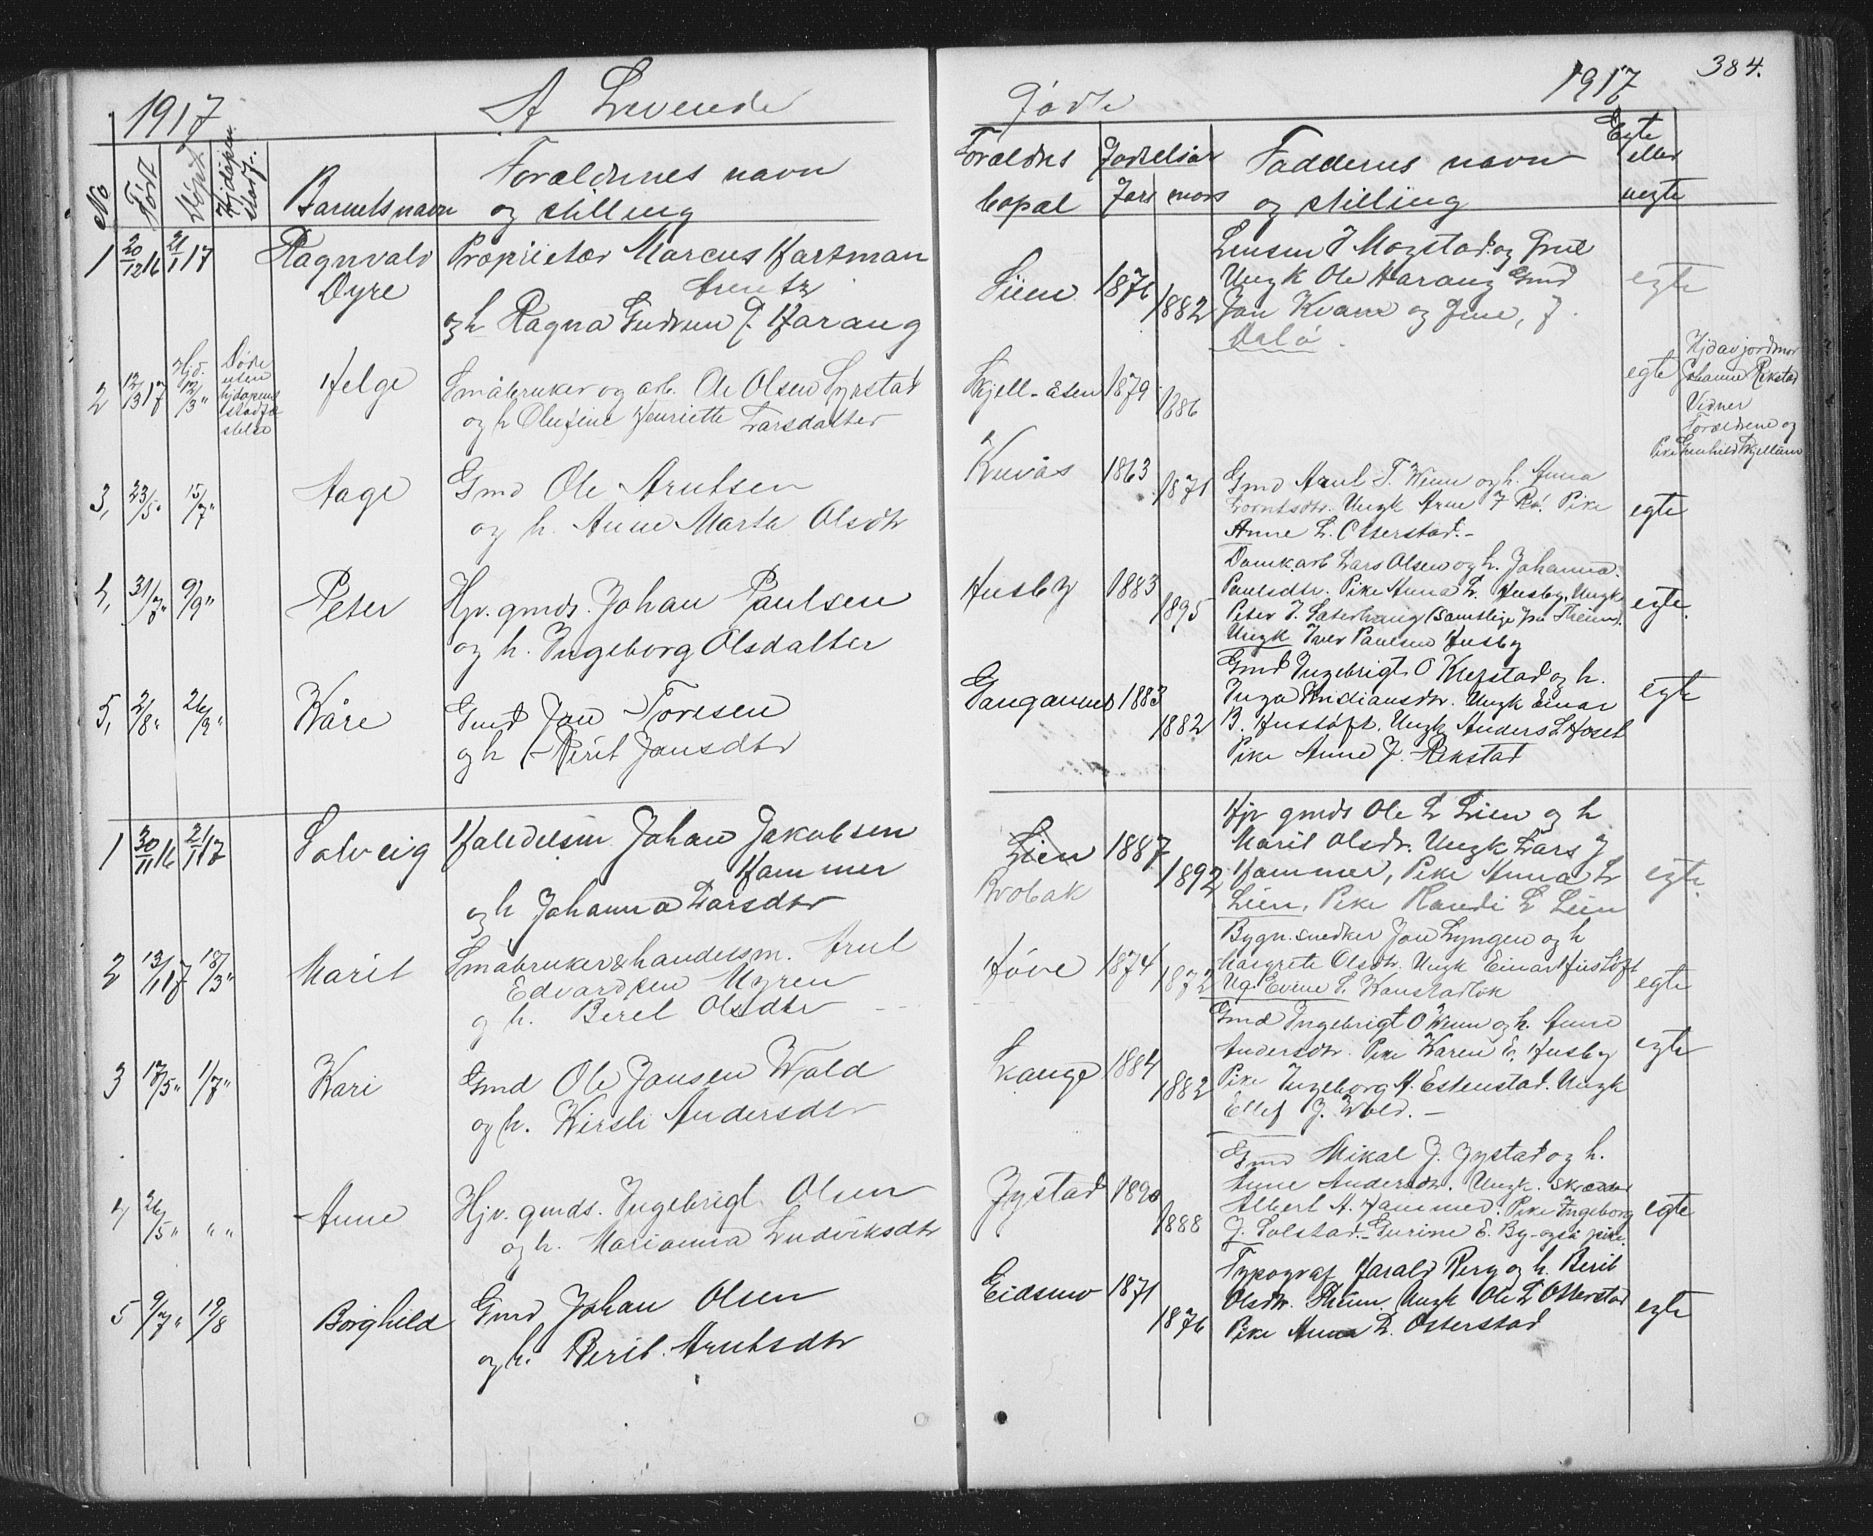 1917
A Levende
fødte
1917
384.
No
Født
Døpt
Hjdøpen
stadf.
Barnets navn
Forældrenes navn
og stilling
Forældres
bopæl
Fødselsår
Fars
mors
Faddernes navn
og stilling
Egte
eller
uegte
1 20/12 16 21/1 17
Ragnvald
Dyre
Proprietær Marcus Hartman
Arentz
og h Ragna Gudrun J. Harang
Lien 1876
1882
Lensm J Mogstad og Frue
Ungk Ole Harang Gmd
Jon Kvam og Frue, f.
Dalø.
egte
2 12/3 17 Hjd. 12/3 "
Døde
uten
hjdøpens
stadfæ
stelse
Helge
Småbruker og arb. Ole Olsen Syrstad
og h Olufine Henriette Larsdatter
Skjell-Esen 1879
1886
egte
Hjd av jordmor
Johanna Rekstad
Vidner
Forældrene og
Pike Gunhild
3, 23/5 " 15/7 "
Aage
Gmd Ole Arntsen
og h. Anne Marta Olsdtr
Kuvås 1863
1871
Gmd Arnt T. Wenn og h. Anna
Lorntsdtr. Ungk Arne J Rø. Pike
Anne L. Olterstad. -
egte
4, 31/7 " 9/9 "
Peter
Hjv. gmds. Johan Paulsen
og h. Ingeborg Olsdatter
Husby 1883
1895
Damkarb Lars Olsen og h. Johanna
Paulsdtr. Pike Anna L. Husby, Ungk
Peter J. Saterhaug (Samtlige fra Theim).
Ungk Iver Paulsen Husby
egte.
5, 2/8 " 26/9 "
Kåre
Gmd Jon Toresen
og h Berit Jonsdtr
Gangaunet 1883
1882
Gmd Ingebrigt O Krefstad og h.
Inga Kristiansdtr. Ungk Einar
B. Hustøft. Ungk Anders L Hoset
Pike Anne J. Rekstad
egte
1 30/11 16 21/1 17
Solveig
Handelsm Johan Jakobsen
Hammer
og h Johanna Larsdtr
Lien 1887
Brobak
1892
Hjv gmds Ole L Lien og h
Marit Olsdr. Ungk Lars J
Hammer, Pike Anna L
Lien, Pike Randi L Lien
egte.
2 13/1 17 18/3 "
Marit
Småbruker & handelsm. Arnt
Edvardsen Myren
og h. Beret Olsdtr
Høve 1874
1872
Bygn.snedker Jon Lyngen og h
Margrete Olsdtr. Ungk Einar Hustøft
Ug. Evine S. Kanstadløk
egte
3 17/5 " 1/7 "
Kari
Gmd Ole Jonsen Wold
og h. Kirsti Andersdtr
Lange 1884
1882
Gmd Ingebrigt O Wenn og h. Anne
Andersdtr. Pike Karen E. Husby
Pike Ingeborg A. Estenstad. Ungk
Ellef J. Wold. -
egte
4 26/5 " " "
Anne
Hjv. gmds. Ingebrigt Olsen
og h. Marianna Ludviksdtr
Jystad 1890
1888
Gmd Mikal J. Jystad og h.
Anne Andersdtr. Ungk. skrædder
Albert A. Hammer. Pike Ingeborg
J. Solstad - Gurine E. By - også pike.
egte
5 9/7 " 19/8
Borghild
Gmd Johan Olsen
og h. Berit Arntsdtr
Eidsmo 1871
1876
Typograf Harald Berg og h. Berit
Olsdtr. Theim. Ungk Ole L Olterstad
Pike Anna L. Olterstad
egte